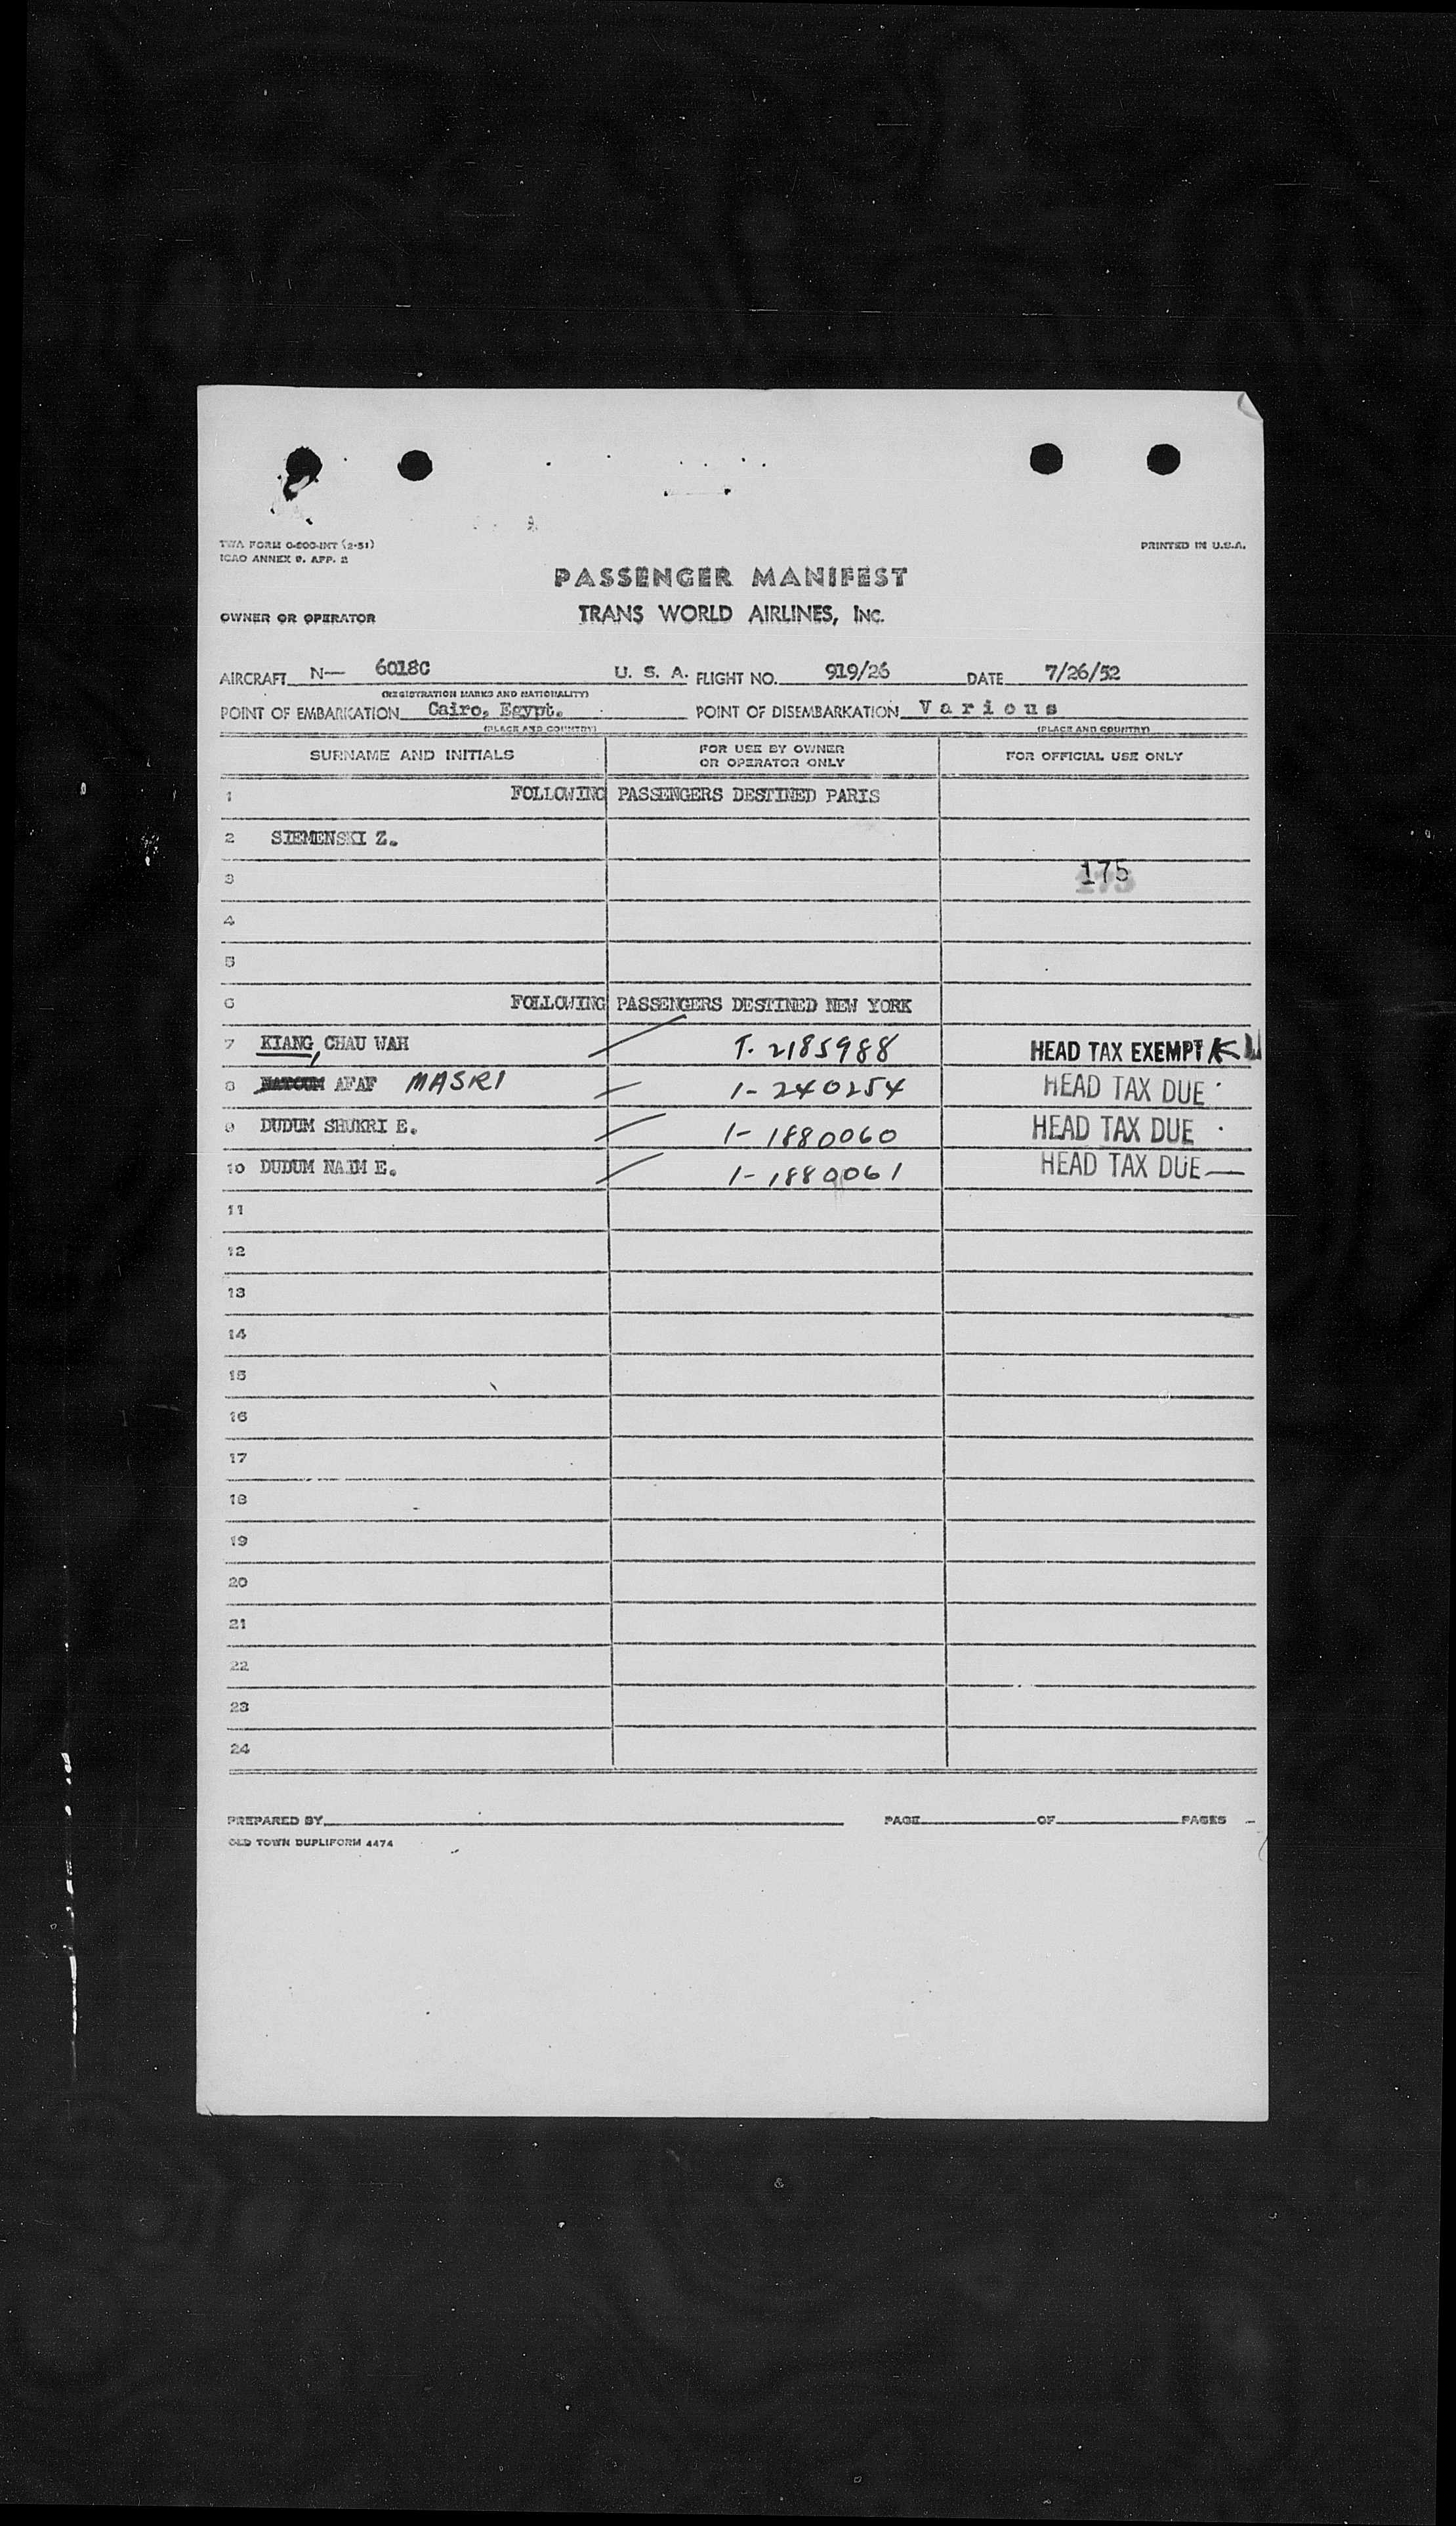 TWA FORM O-800-INT (2-51)
ICAO ANNEX 9. APP. 2
PRINTED IN U.S.A.
PASSENGER MANIFEST
OWNER OR OPERATOR TRANS WORLD AIRLINES, INC.
AIRCRAFT N— 6018C U. S. A. FLIGHT NO. 919/26 DATE 7/26/52
(REGISTRATION MARKS AND NATIONALITY)
POINT OF EMBARKATION Cairo, Egypt. POINT OF DISEMBARKATION Various
(PLACE AND COUNTRY) (PLACE AND COUNTRY)
SURNAME AND INITIALS FOR USE BY OWNER OR OPERATOR ONLY FOR OFFICIAL USE ONLY
1 FOLLOWING PASSENGERS DESTINED PARIS
2 SIEMENSKI Z.
3 175
4
5
6 FOLLOWING PASSENGERS DESTINED NEW YORK
7 KIANG, CHAU WAH T-2185988 HEAD TAX EXEMPT
8 AFAF MASRI 1-240254 HEAD TAX DUE
9 DUDUM SHUKRI E. 1-1880060 HEAD TAX DUE
10 DUDUM NAIM E. 1-1880061 HEAD TAX DUE
11
12
13
14
15
16
17
18
19
20
21
22
23
24
PREPARED BY PAGE OF PAGES
OLD TOWN DUPLIFORM 4474